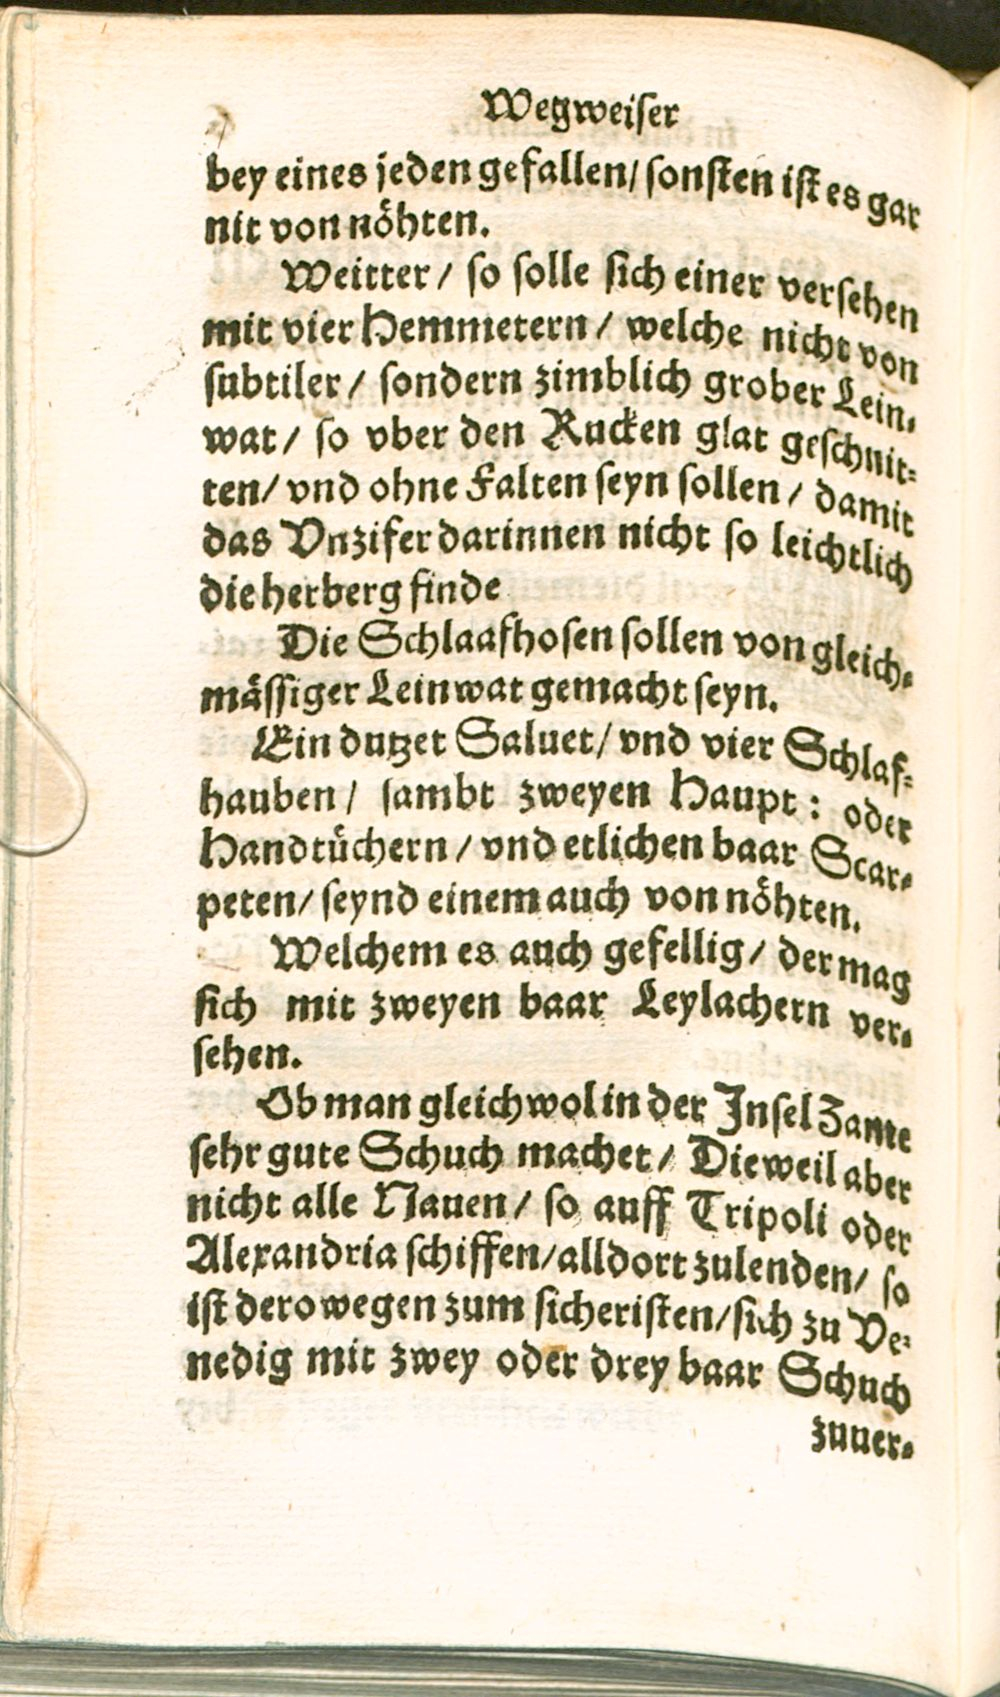 Wegweiser
bey eines jeden gefallen/ sonsten ist es gar
nit von nöhten.
Weitter/ so solle sich einer versehen
mit vier Hemmetern/ welche nicht von
subtiler/ sondern zimblich grober Lein-
wat/ so vber den Rucken glat geschnit-
ten/ vnd ohne Falten seyn sollen/ damit
das Vnzifer darinnen nicht so leichtlich
die herberg finde
Die Schlaafhosen sollen von gleich-
mässiger Leinwat gemacht seyn.
Ein dutzet Saluet/ vnd vier Schlaf-
hauben/ sambt zweyen Haupt: oder
Handtüchern/ vnd etlichen baar Scar-
peten/ seynd einem auch von nöhten.
Welchem es auch gefellig/ der mag
sich mit zweyen baar Leylachern ver-
sehen.
Ob man gleichwol in der Insel Zante
sehr gute Schuch machet/ Dieweil aber
nicht alle Nauen/ so auff Tripoli oder
Alexandria schiffen/ alldort zulenden/ so
ist derowegen zum sicheristen/ sich zu Ve-
nedig mit zwey oder drey baar Schuch
zuuer-